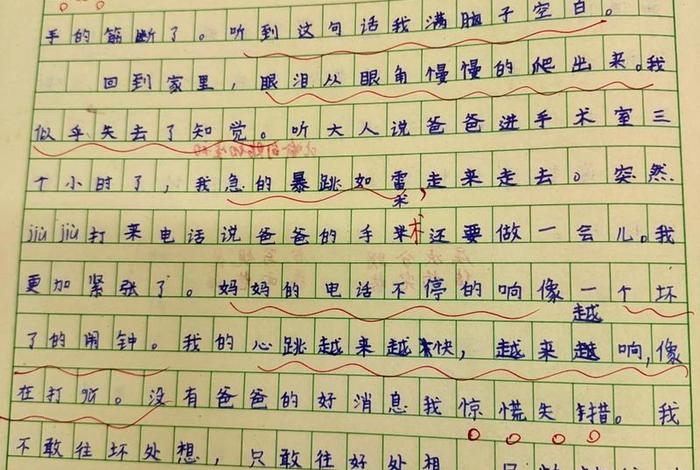 手的筋断了。听到这句话我满脑子空白。
回到家里，眼泪从眼角慢慢的爬出来。我
似乎失去了知觉。听大人说爸爸进手术室三
个小时了，我急的暴跳如雷，走来走去。突然
jiù jiu打来电话说爸爸的手术还要做一会儿。我
更加紧张了。妈妈的电话不停的响像一个坏
了的闹钟。我的心跳越来越快，越来越响，像
在打吵。没有爸爸的好消息我惊慌失错。我
不敢往坏处想，只敢往好处想